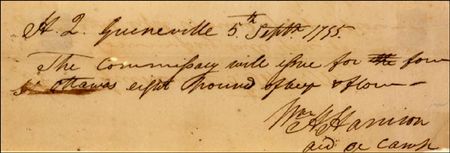 H Q. Greeneville 5th Septr. 1795.
The Commissary will issue for the four
ottawas eight pound of beef & flour —
Wm. H Harrison
aid de camp